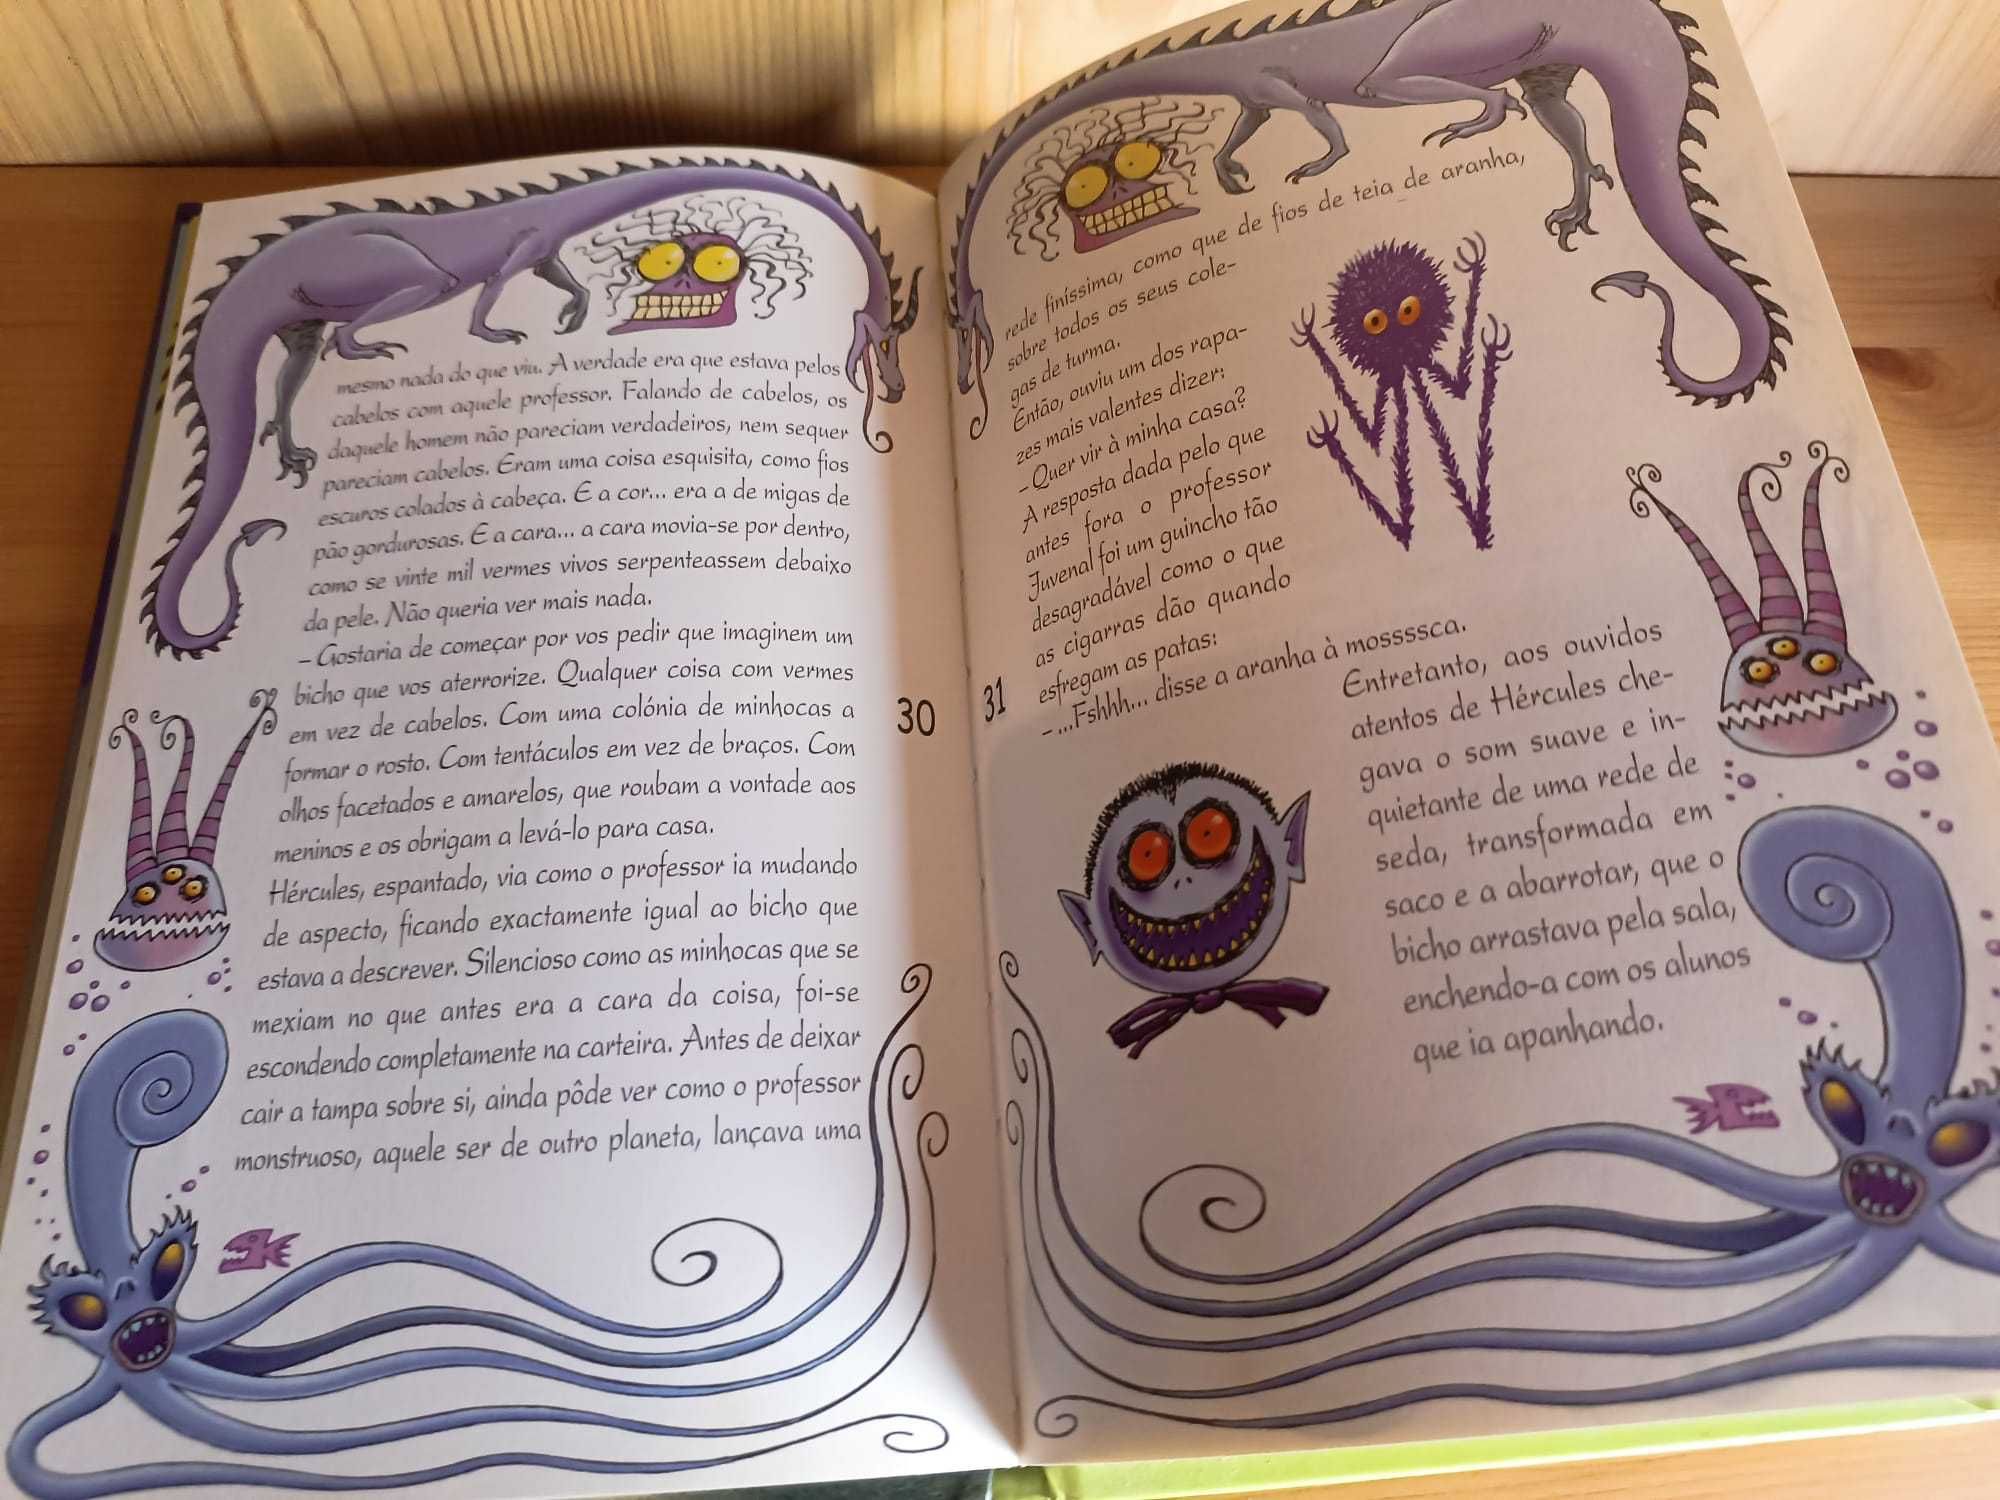 mesmo nada do que viu. A verdade era que estava pelos
cabelos com aquele professor. Falando de cabelos, os
daquele homem não pareciam verdadeiros, nem sequer
pareciam cabelos. Eram uma coisa esquisita, como fios
escuros colados à cabeça. E a cor... era a de migas de
pão gordurosas. E a cara... a cara movia-se por dentro,
como se vinte mil vermes vivos serpenteassem debaixo
da pele. Não queria ver mais nada.
– Gostaria de começar por vos pedir que imaginem um
bicho que vos aterrorize. Qualquer coisa com vermes
em vez de cabelos. Com uma colónia de minhocas a
formar o rosto. Com tentáculos em vez de braços. Com
olhos facetados e amarelos, que roubam a vontade aos
meninos e os obrigam a levá-lo para casa.
Hércules, espantado, via como o professor ia mudando
de aspecto, ficando exactamente igual ao bicho que
estava a descrever. Silencioso como as minhocas que se
mexiam no que antes era a cara da coisa, foi-se
escondendo completamente na carteira. Antes de deixar
cair a tampa sobre si, ainda pôde ver como o professor
monstruoso, aquele ser de outro planeta, lançava uma
30
rede finíssima, como que de fios de teia de aranha,
sobre todos os seus cole-
gas de turma.
Então, ouviu um dos rapa-
zes mais valentes dizer:
– Quer vir à minha casa?
A resposta dada pelo que
antes fora o professor
Juvenal foi um guincho tão
desagradável como o que
as cigarras dão quando
esfregam as patas:
– ...Fshhh... disse a aranha à mossssca.
31
Entretanto, aos ouvidos
atentos de Hércules che-
gava o som suave e in-
quietante de uma rede de
seda, transformada em
saco e a abarrotar, que o
bicho arrastava pela sala,
enchendo-a com os alunos
que ia apanhando.